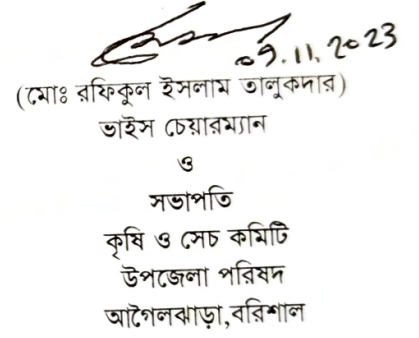 09.11.2023
(মোঃ রফিকুল ইসলাম তালুকদার)
ভাইস চেয়ারম্যান
ও
সভাপতি
কৃষি ও সেচ কমিটি
উপজেলা পরিষদ
আগৈলঝাড়া,বরিশাল